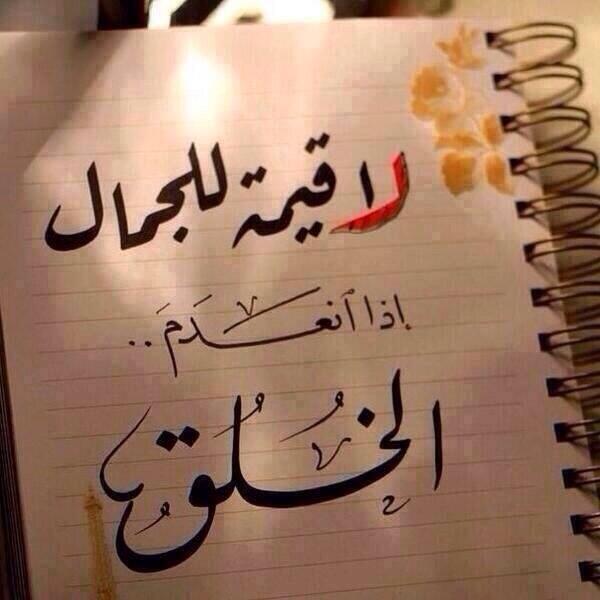 لا قيمة للجمال
إذا أنعَدَمَ ..
الخُلُقُ